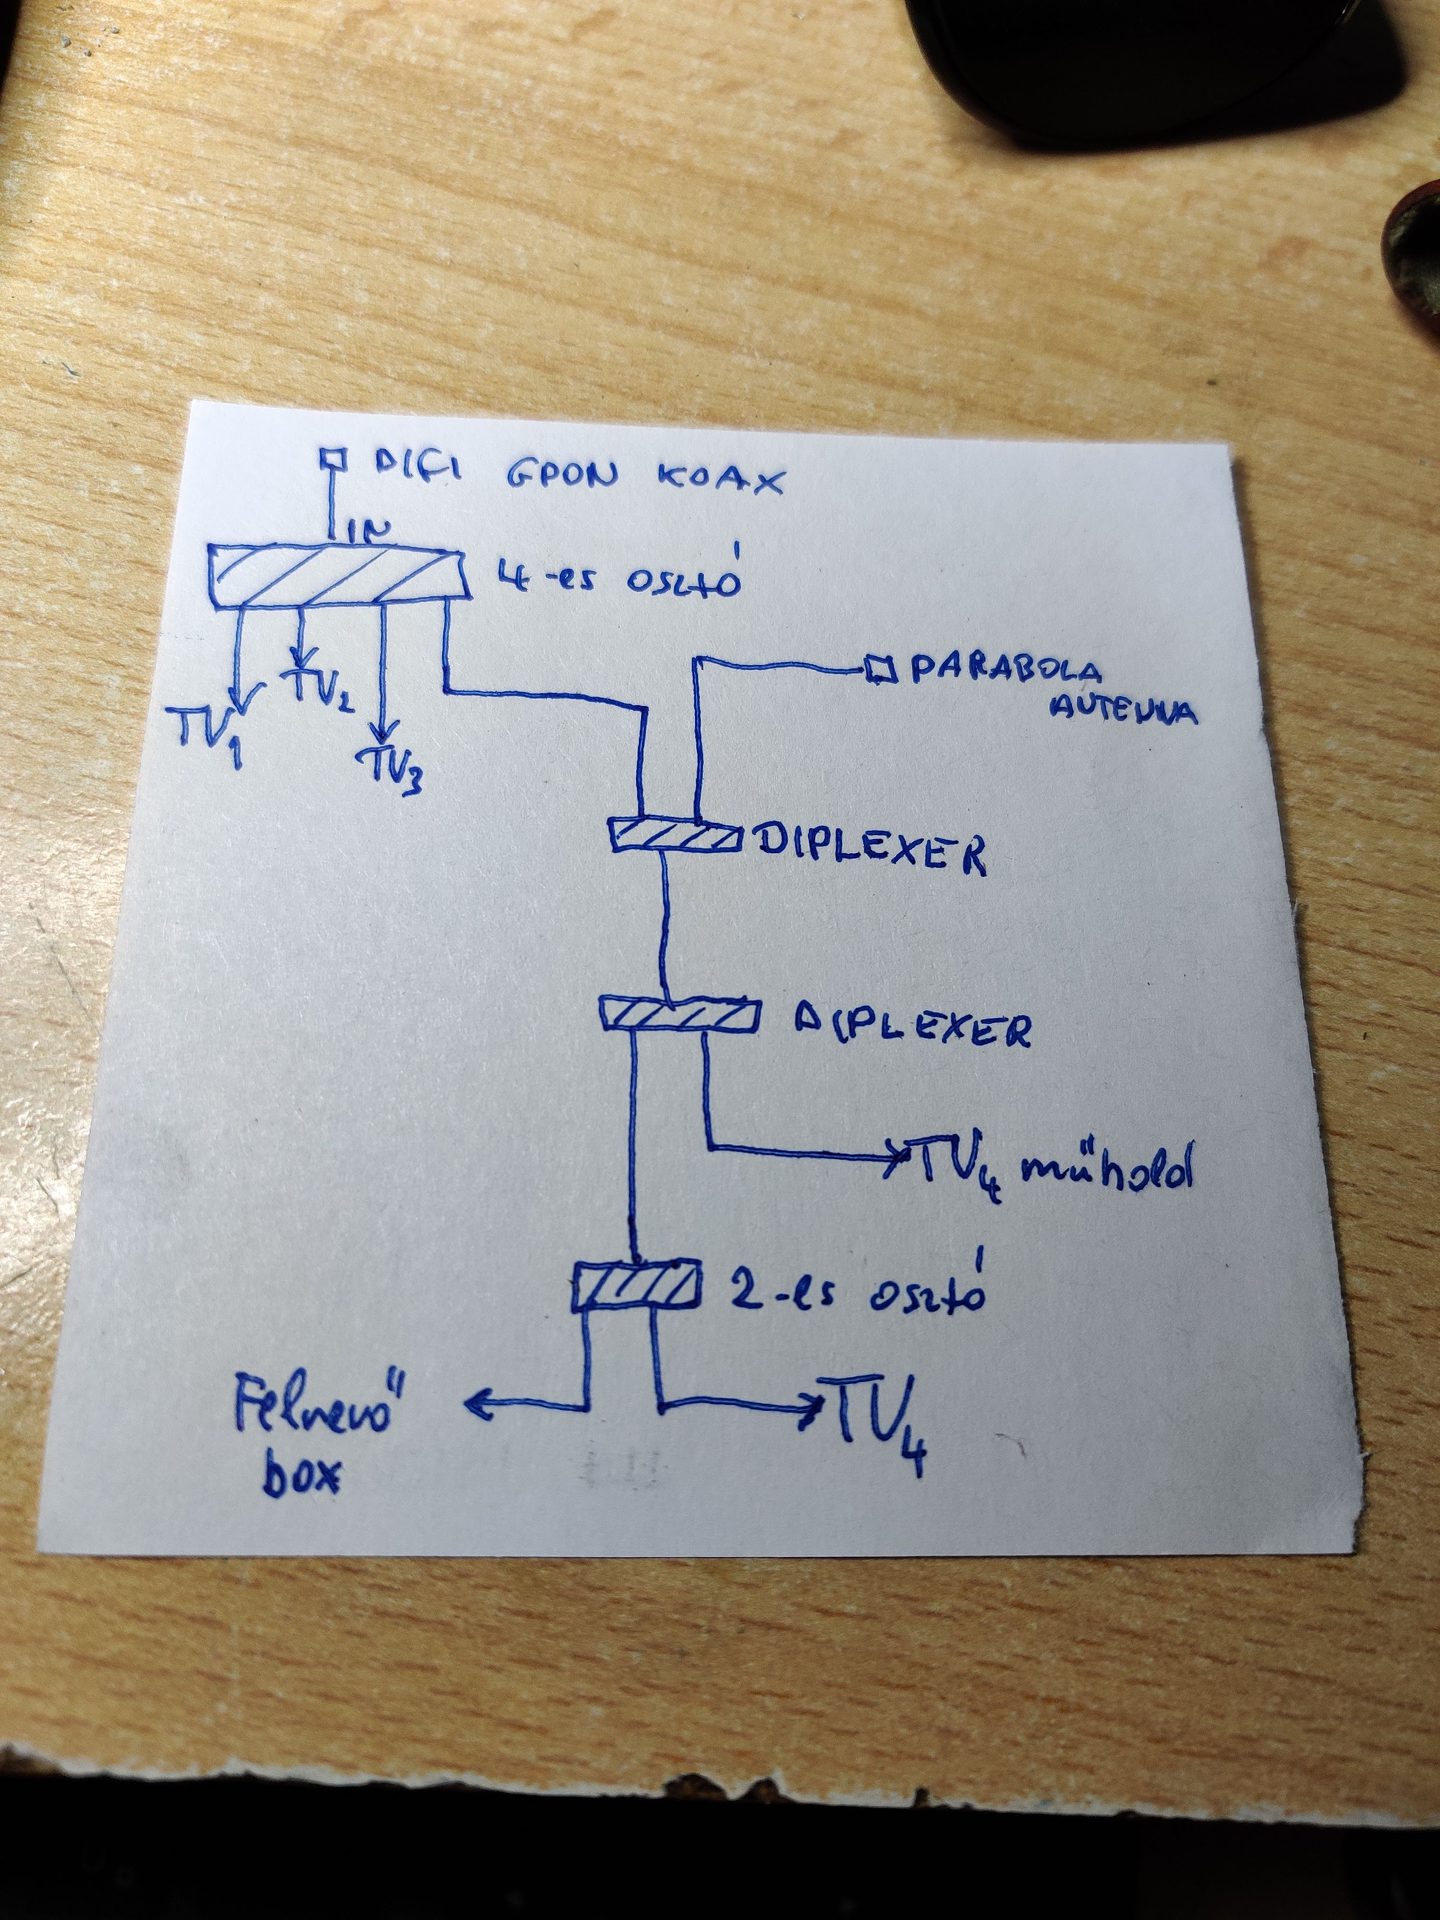 DIGI GPON KOAX
IN
4-es osztó
TV1
TV2
TV3
PARABOLA
ANTENNA
DIPLEXER
DIPLEXER
TV4 műhold
2-es osztó
Felvevő
box
TV4